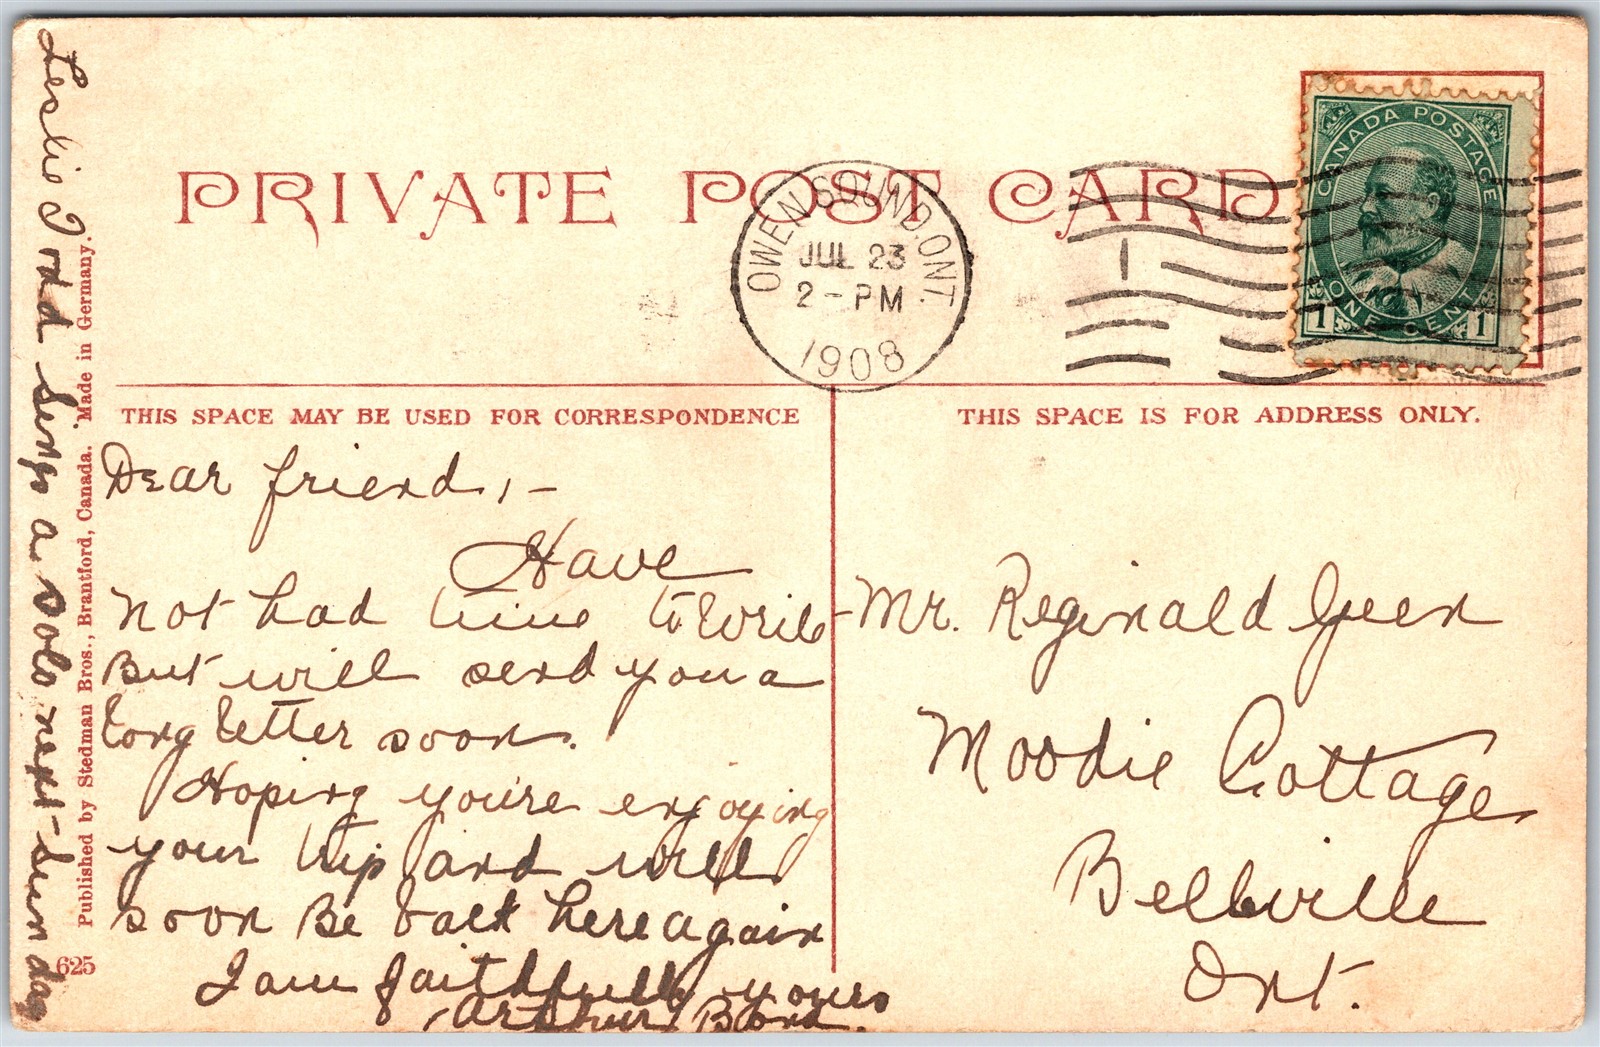 PRIVATE POST CARD
OWEN SOUND, ONT.
JUL 23
2 - PM
1908
1
CANADA POSTAGE
ONE CENT
1 1
THIS SPACE MAY BE USED FOR CORRESPONDENCE
Dear friend, -
Have
not had time to write
But will send you a
long letter soon.
Hoping you're enjoying
your trip and will
soon Be back here again
I am faithfully yours
Arthur
THIS SPACE IS FOR ADDRESS ONLY.
Mr. Reginald Geen
Moodie Cottage
Bellville
Ont.
Leslie Todd sings a solo next Sunday
Published by Stedman Bros., Brantford, Canada. Made in Germany.
625